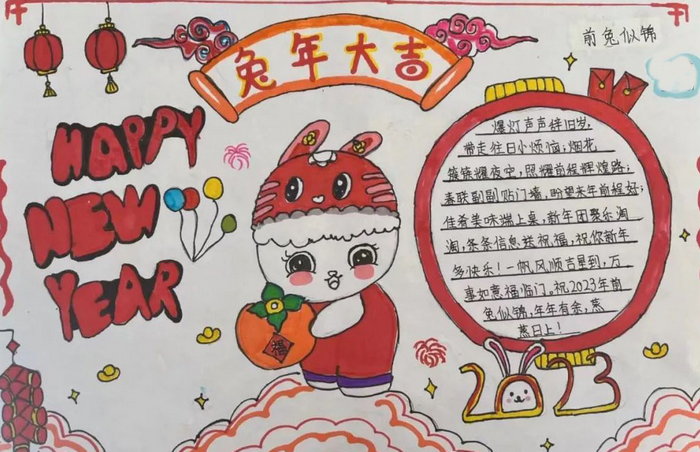 兔年大吉
前兔似锦
HAPPY
NEW
YEAR
爆灯声声伴旧岁,
带走往日小烦恼,烟花
簇簇耀夜空,照耀前程辉煌路;
春联副副贴门墙,盼望来年前程好;
佳肴美味端上桌,新年团聚乐淘
淘,条条信息送祝福,祝你新年
多快乐!一帆风顺吉星到,万
事如意福临门。祝2023年前
兔似锦,年年有余,蒸
蒸日上!
福
2023